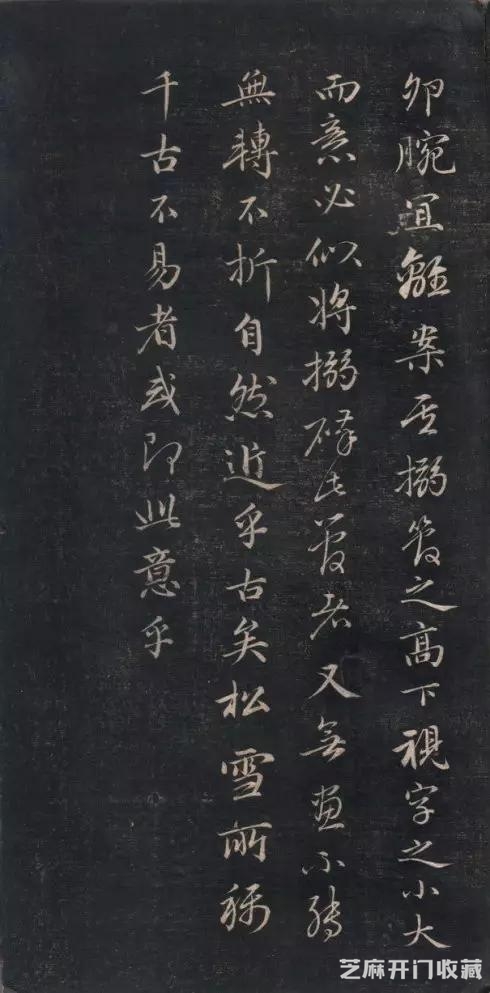 卯腕宜離案至搦管之高下視字之小大
而意必似將搦碎此管者又無畫不轉
無轉不折自然近乎古矣松雪所稱
千古不易者或即此意乎
芝麻开门收藏